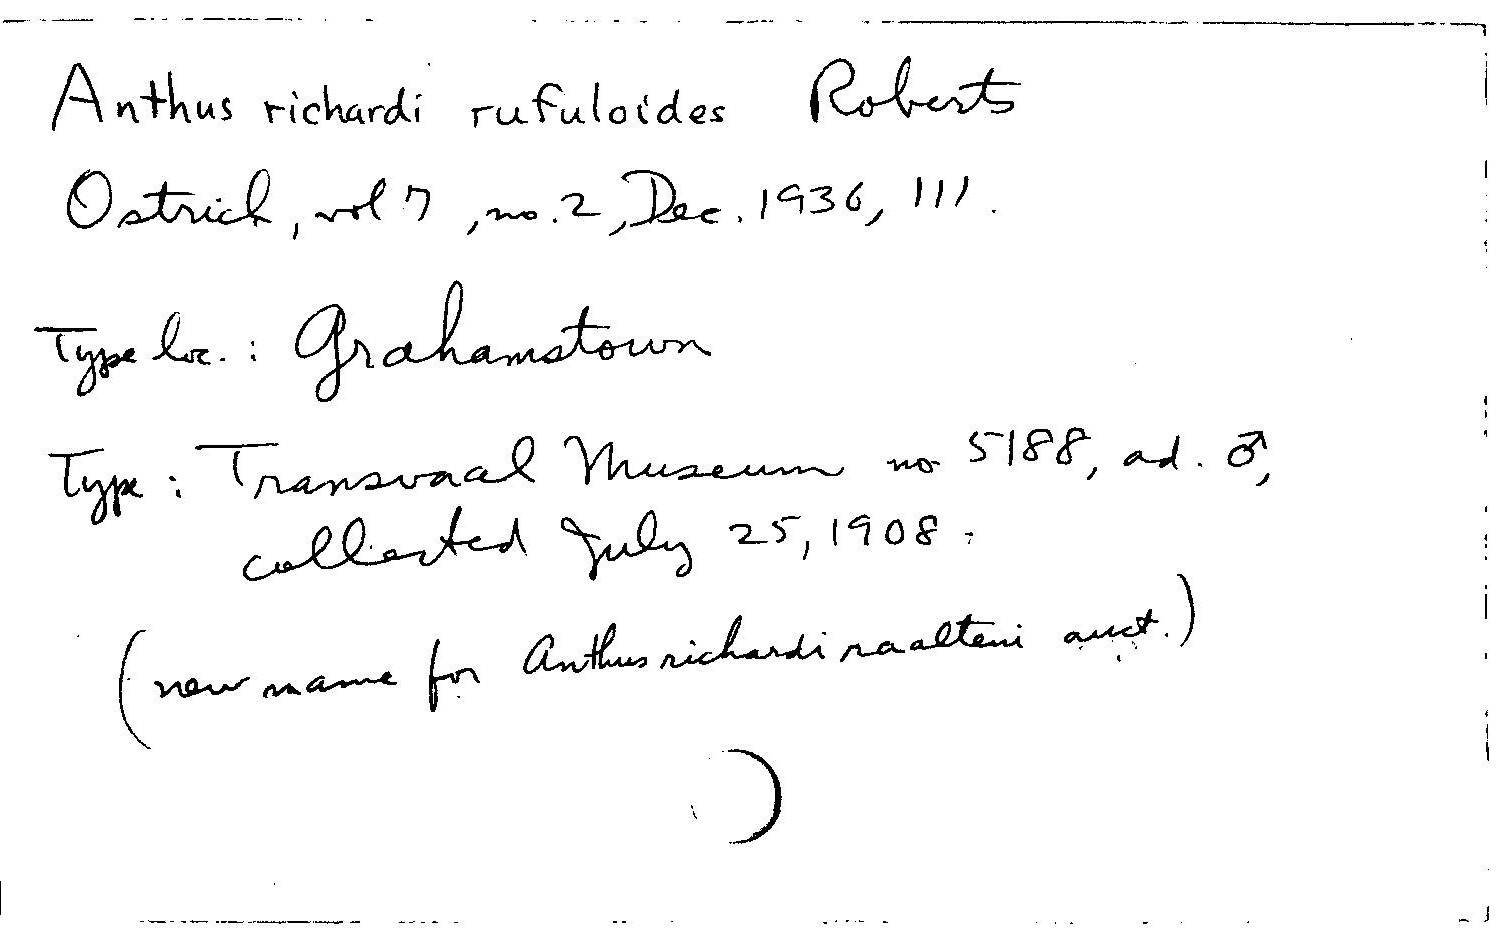 Anthus richardi rufuloides Roberts
Ostrich, vol 7, no. 2, Dec. 1936, 111.
Type loc.: Grahamstown
Type: Transvaal Museum no 5188, ad. ♂,
collected July 25, 1908.
(new name for Anthus richardi raalteni auct.)